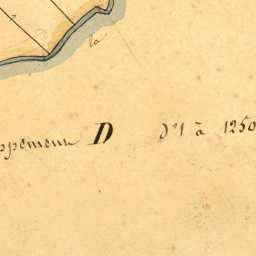 la
ppement D d'1 à 1250